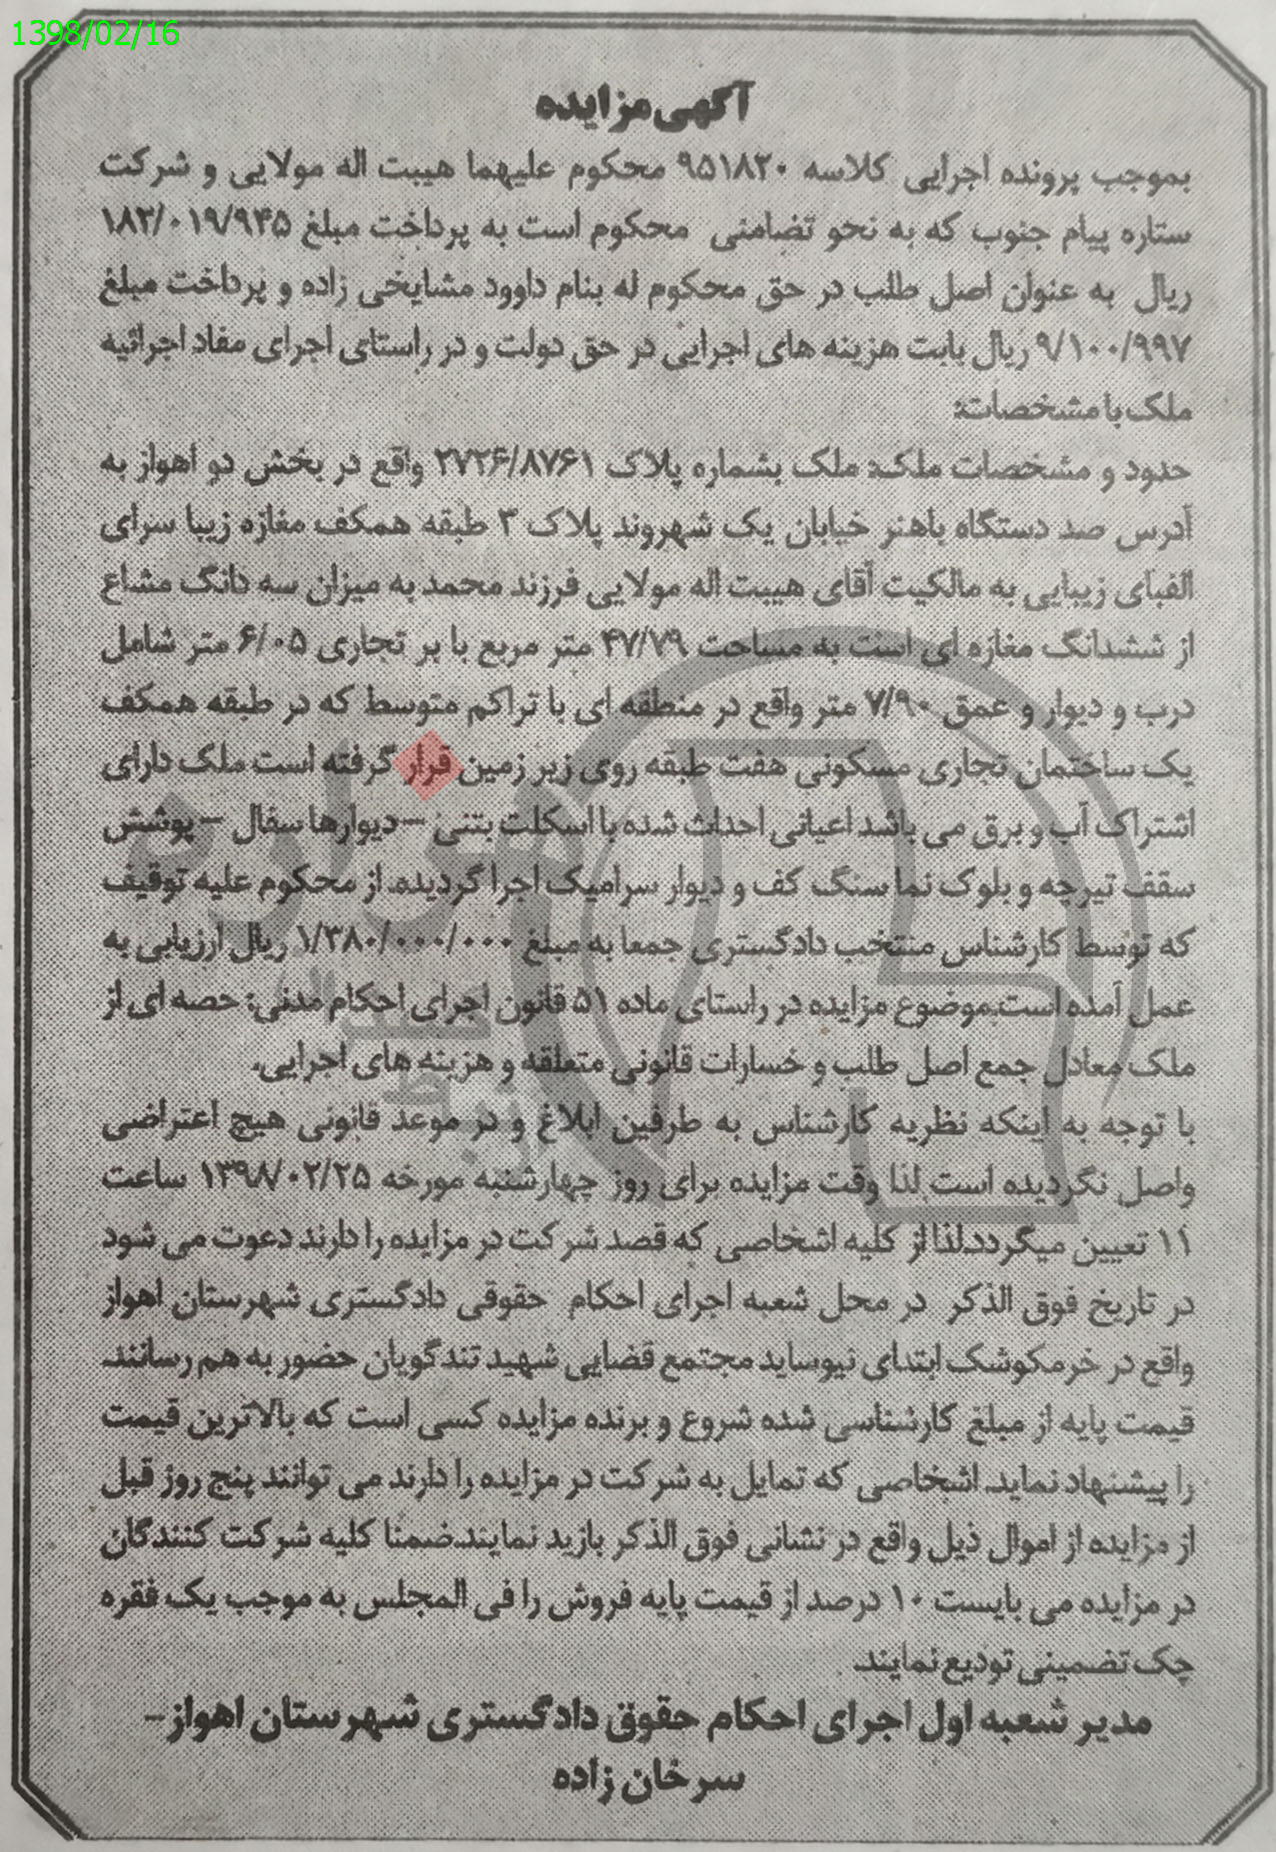 1398/02/16
آگهی مزایده
بموجب پرونده اجرایی کلاسه ۹۵۱۸۲۰ محکوم علیهما هیبت اله مولایی و شرکت
ستاره پیام جنوب که به نحو تضامنی محکوم است به پرداخت مبلغ ۱۸۲/۰۱۹/۹۴۵
ریال به عنوان اصل طلب در حق محکوم له بنام داوود مشایخی زاده و پرداخت مبلغ
۹/۱۰۰/۹۹۷ ریال بابت هزینه های اجرایی در حق دولت و در راستای اجرای مفاد اجرائیه
ملک با مشخصات:
حدود و مشخصات ملک: ملک بشماره پلاک ۲۷۲۶/۸۷۶۱ واقع در بخش دو اهواز به
آدرس صد دستگاه باهنر خیابان یک شهروند پلاک ۳ طبقه همکف مغازه زیبا سرای
الفبای زیبایی به مالکیت آقای هیبت اله مولایی فرزند محمد به میزان سه دانگ مشاع
از ششدانگ مغازه ای است به مساحت ۴۷/۷۹ متر مربع با بر تجاری ۶/۰۵ متر شامل
درب و دیوار و عمق ۷/۹۰ متر واقع در منطقه ای با تراکم متوسط که در طبقه همکف
یک ساختمان تجاری مسکونی هفت طبقه روی زیر زمین قرار گرفته است ملک دارای
اشتراک آب و برق می باشد اعیانی احداث شده با اسکلت بتنی – دیوارها سفال – پوشش
سقف تیرچه و بلوک نما سنگ کف و دیوار سرامیک اجرا گردیده. از محکوم علیه توقیف
که توسط کارشناس منتخب دادگستری جمعا به مبلغ ۱/۳۸۰/۰۰۰/۰۰۰ ریال ارزیابی به
عمل آمده است.موضوع مزایده در راستای ماده ۵۱ قانون اجرای احکام مدنی: حصه ای از
ملک معادل جمع اصل طلب و خسارات قانونی متعلقه و هزینه های اجرایی.
با توجه به اینکه نظریه کارشناس به طرفین ابلاغ و در موعد قانونی هیچ اعتراضی
واصل نگردیده است لذا وقت مزایده برای روز چهارشنبه مورخه ۱۳۹۸/۰۲/۲۵ ساعت
۱۱ تعیین میگردد.لذا از کلیه اشخاصی که قصد شرکت در مزایده را دارند دعوت می شود
در تاریخ فوق الذکر در محل شعبه اجرای احکام حقوقی دادگستری شهرستان اهواز
واقع در خرمکوشک ابتدای نیوساید مجتمع قضایی شهید تندگویان حضور به هم رسانند.
قیمت پایه از مبلغ کارشناسی شده شروع و برنده مزایده کسی است که بالاترین قیمت
را پیشنهاد نماید. اشخاصی که تمایل به شرکت در مزایده را دارند می توانند پنج روز قبل
از مزایده از اموال ذیل واقع در نشانی فوق الذکر بازید نمایند.ضمنا کلیه شرکت کنندگان
در مزایده می بایست ۱۰ درصد از قیمت پایه فروش را فی المجلس به موجب یک فقره
چک تضمینی تودیع نمایند.
مدیر شعبه اول اجرای احکام حقوق دادگستری شهرستان اهواز–
سرخان زاده